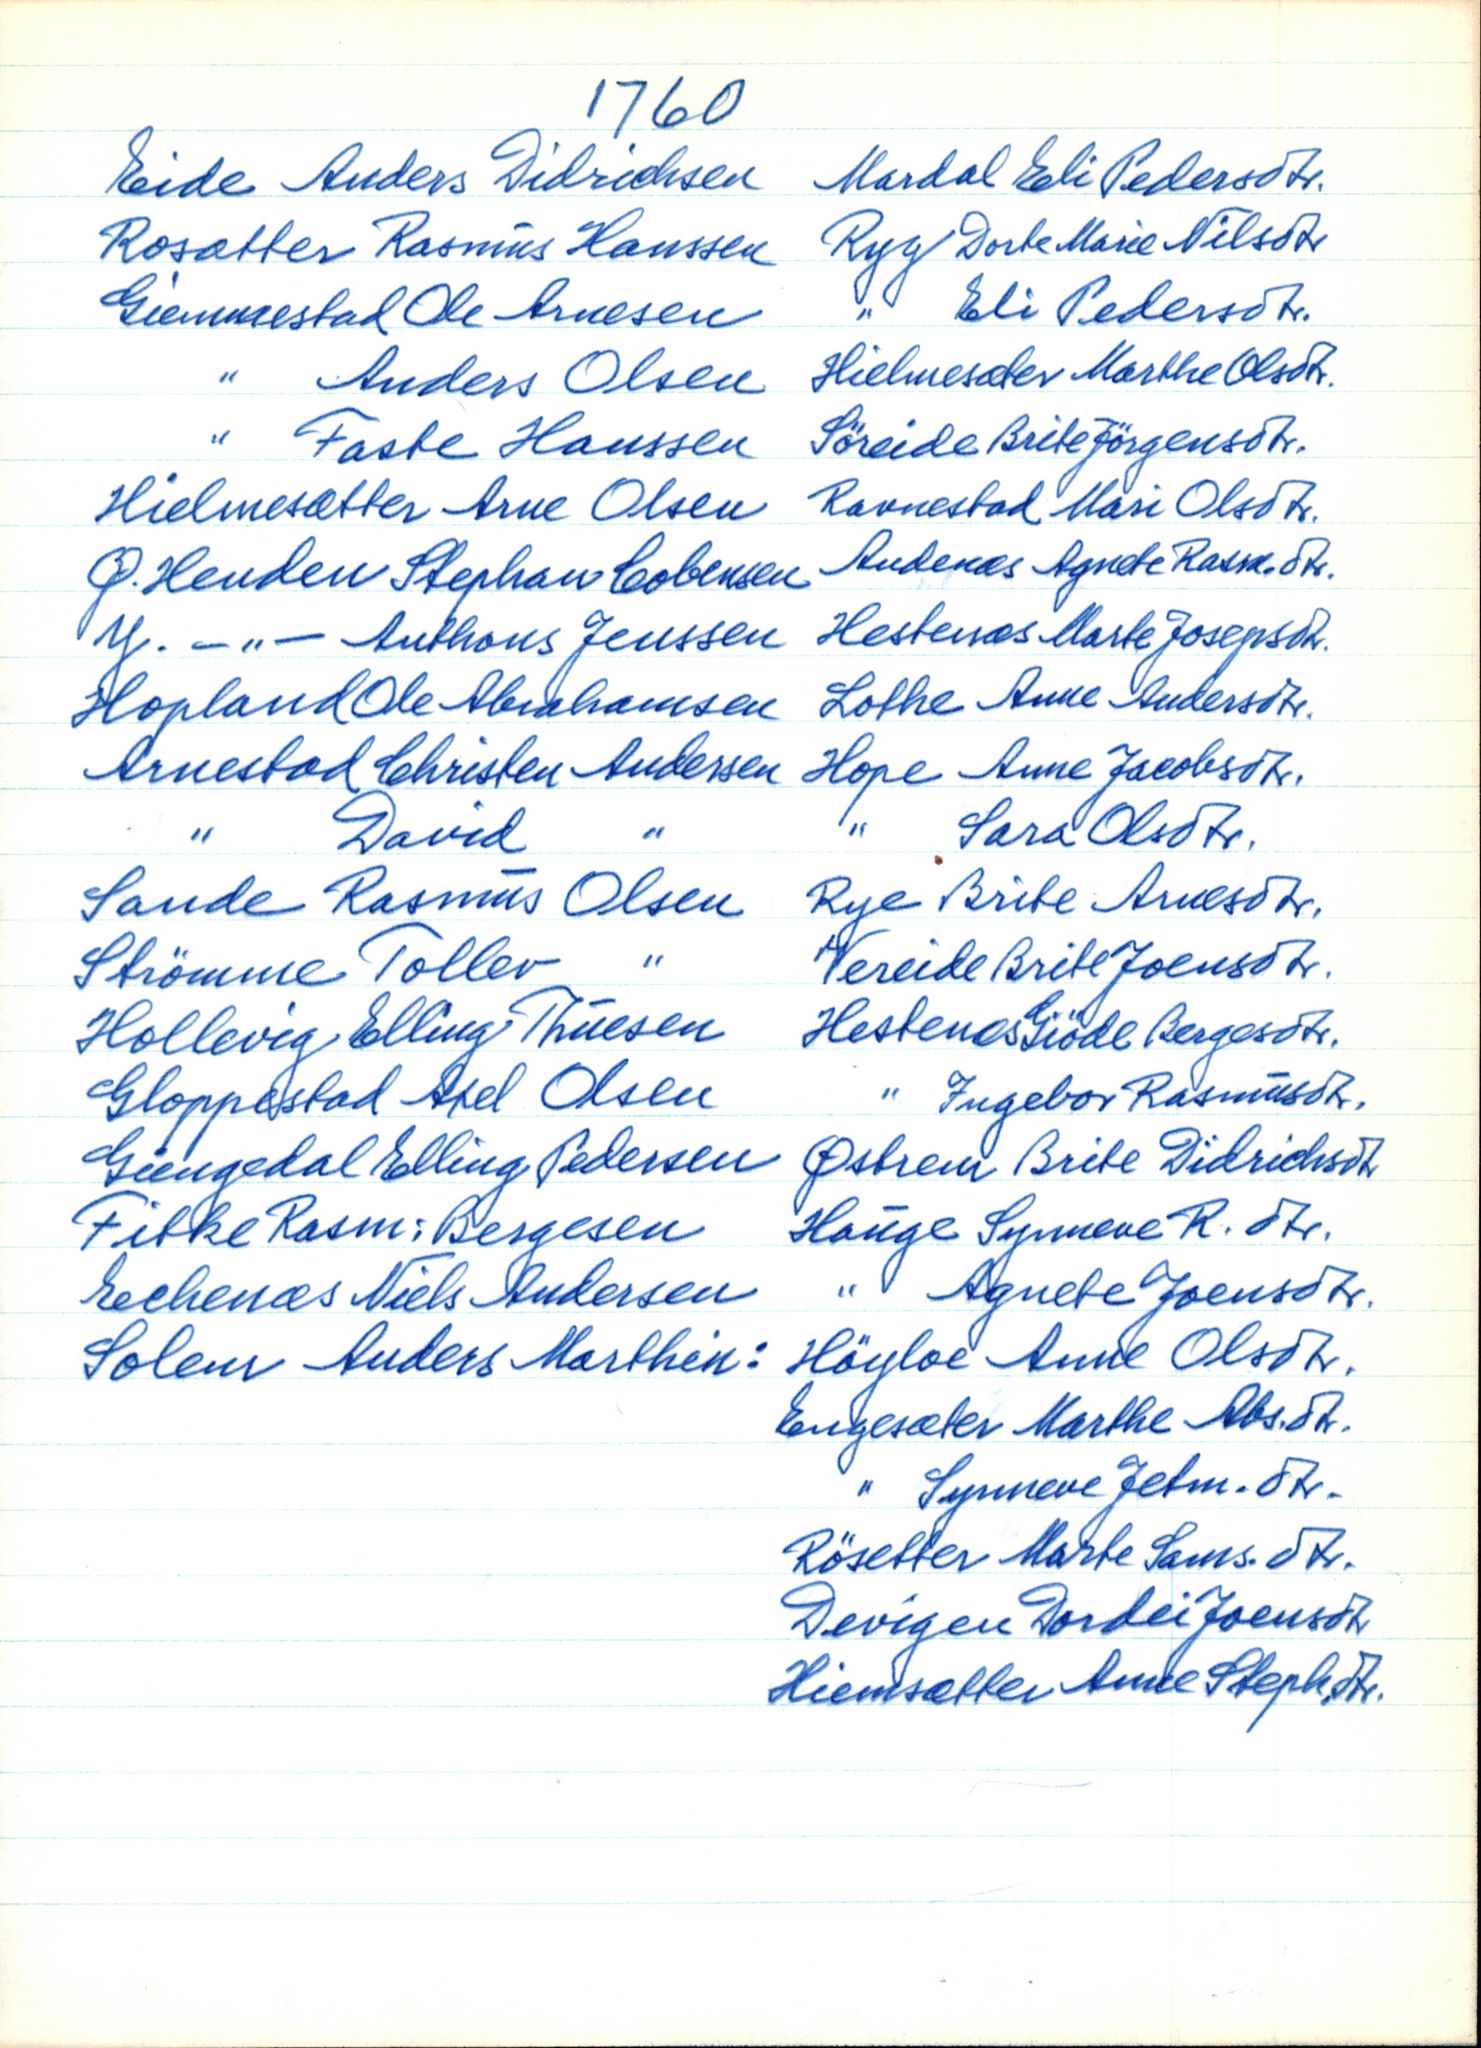 1760
Eide Anders Didrichsen Mardal Eli Pedersdtr.
Rosætter Rasmus Hanssen Ryg Dorte Marie Nilsdtr
Giemmestad Ole Arnesen " Eli Pedersdtr.
" Anders Olsen Hielmesæter Marthe Olsdtr.
" Faste Hanssen Söreide Brite Jörgensdtr.
Hielmesætter Arne Olsen Ravnestad Mari Olsdtr.
Ø. Henden Stephan Cobensen Andenæs Agnete Rasm.dtr.
Y. -"- Anthons Jenssen Hestenæs Marte Josepsdtr.
Hopland Ole Abrahamsen Lothe Anne Andersdtr.
Arnestad Christen Andersen Hope Anne Jacobsdtr.
" David " " Sara Olsdtr.
Sande Rasmus Olsen Rye Brite Arnesdtr.
Strömme Tollev " Vereide Brite Joensdtr.
Hollevig Elling Thuesen Hestenæs Giöde Bergesdtr.
Gloppestad Axel Olsen " Ingebor Rasmusdtr.
Giengedal Elling Pedersen Østrem Brite Didrichsdtr
Fitke Rasm: Bergesen Hauge Synneve R. dtr.
Eechenæs Niels Andersen " Agnete Joensdtr.
Solem Anders Marthin: Höyloe Anne Olsdtr.
Engesæter Marthe Abs.dtr.
" Synneve Jetm. dtr.
Rösetter Marte Sams. dtr.
Devigen Dordei Joensdtr
Hiemsætter Anne Steph.dtr.